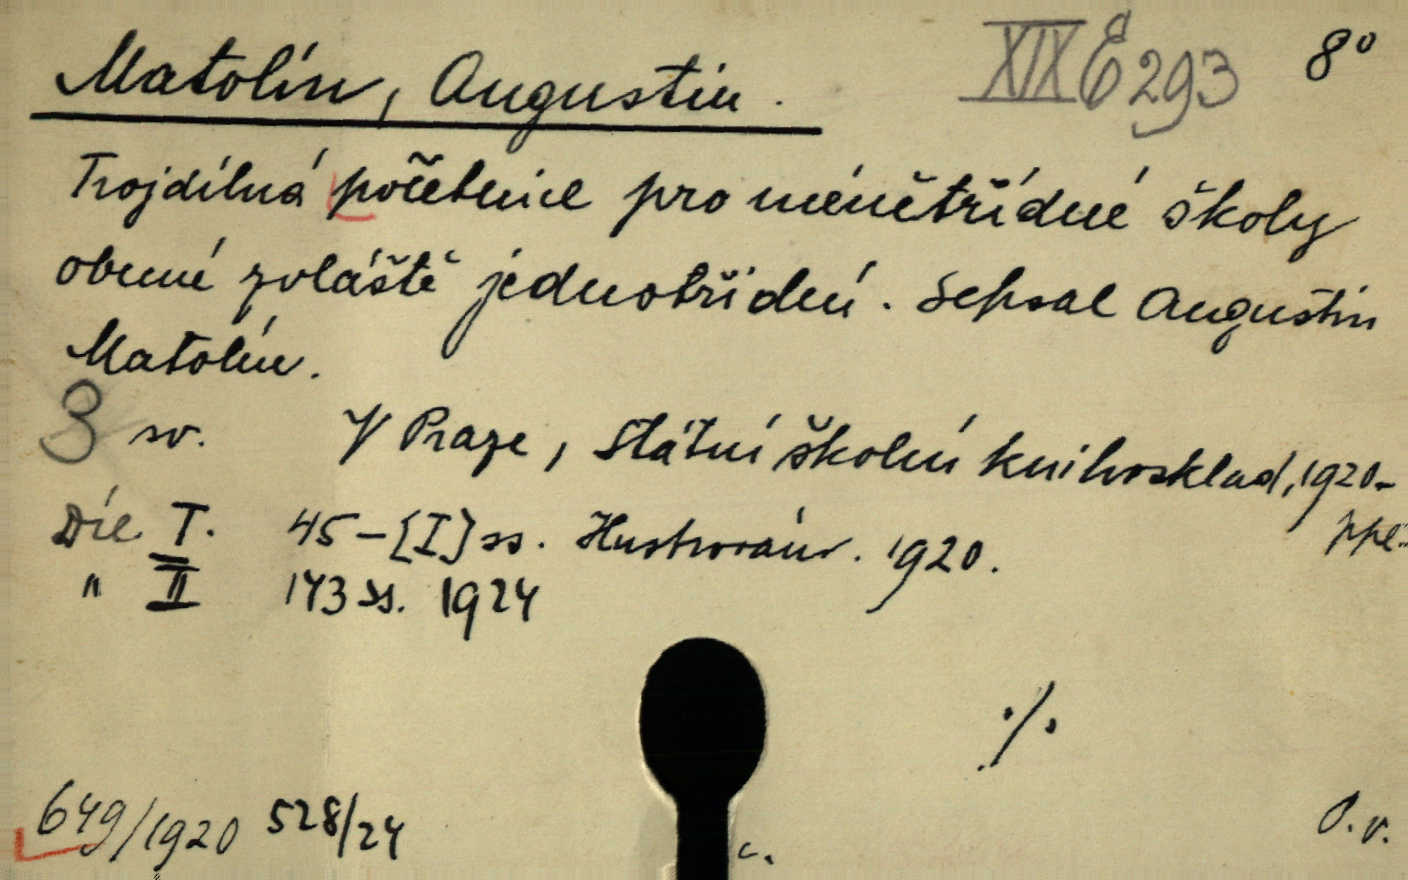 Matolín, Augustin. XIX E 293 8°
Trojdílná početnice pro méнětřídné školy
obecné zvláště jednotřídní. Sepsal Augustin
Matolín.
3 sv. V Praze, Státní školní knihosklad, 1920-
Díl I. 45-[I] ss. Ilustrován. 1920. ppě.
" II 143 ss. 1924
·/.
649/1920 528/24 c. O. v.